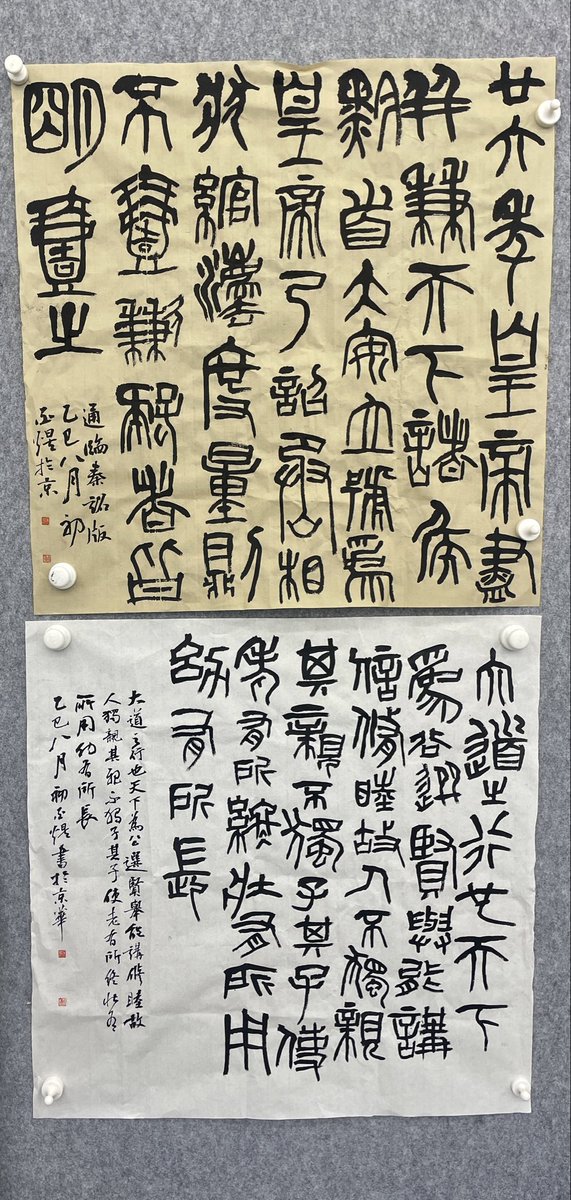 廿六年皇帝盡
并兼天下諸侯
黔首大安立號為
皇帝乃詔丞相
狀綰灋度量則
不壹歉疑者皆
明壹之
通臨秦詔版
乙巳八月初
煜於京
大道之行也天下
為公選賢與能講
信脩睦故人不獨親
其親不獨子其子使
老有所終壯有所用
幼有所長
大道之行也天下為公選賢舉能講修睦故
人獨親其親不獨子其子使老有所終壯有
所用幼有所長
乙巳八月初煜書於京華